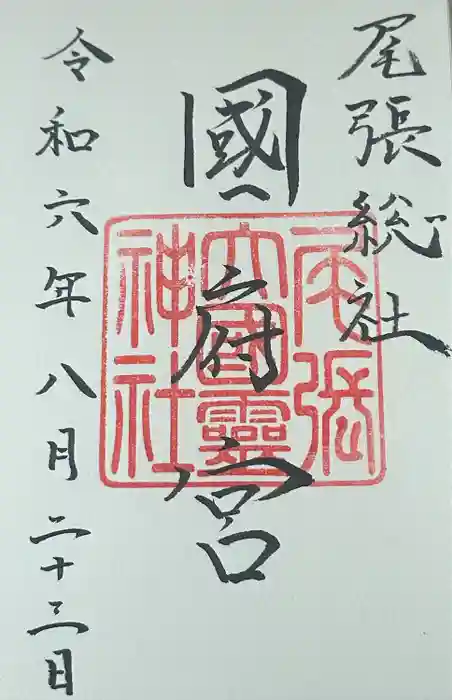 尾張総社
國府宮
令和六年八月二十三日
尾張
大國霊
神社